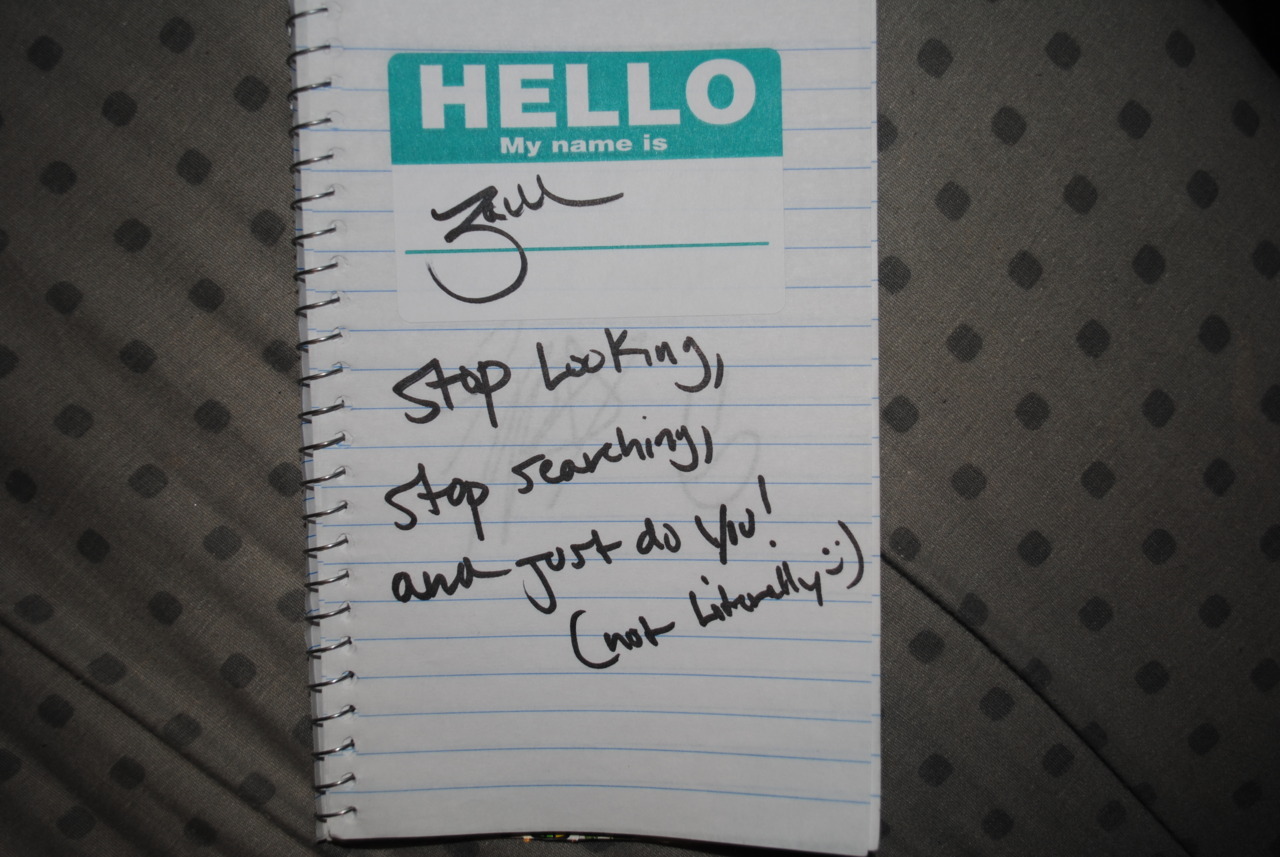 HELLO
My name is
Stop Looking,
Stop searching,
and just do you!
(not Literally :))